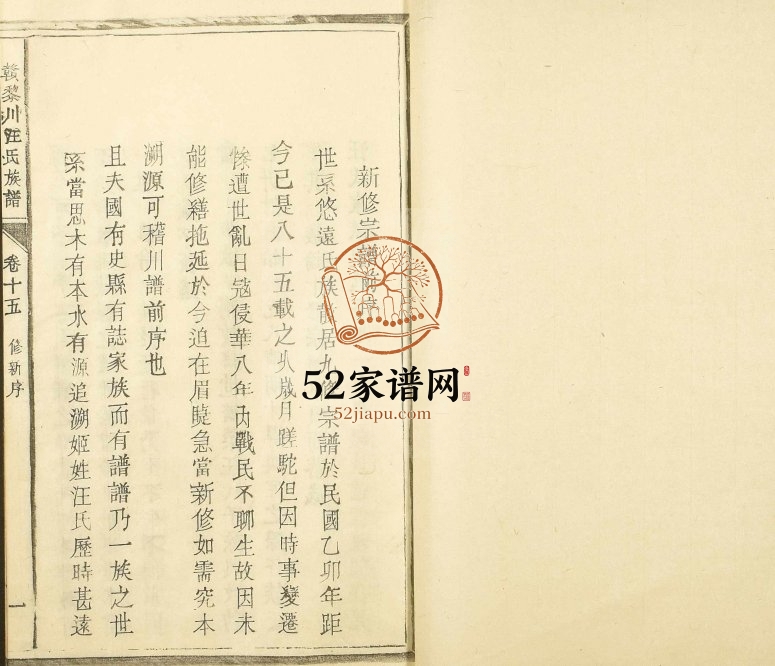 新修宗譜
世系悠遠氏族居九修宗譜於民國乙卯年距
今已是八十五載之久歲月蹉駝但因時事變遷
慘遭世亂日寇侵華八年內戰民不聊生故因未
能修繕拖延於今迫在眉睫急當新修如需究本
溯源可稽川譜前序也
且夫國有史縣有誌家族而有譜譜乃一族之世
系當思木有本水有源追溯姬姓汪氏歷時甚遠
贛黎川汪氏族譜
卷十五
修新序
一
52家谱网
52jiapu.com